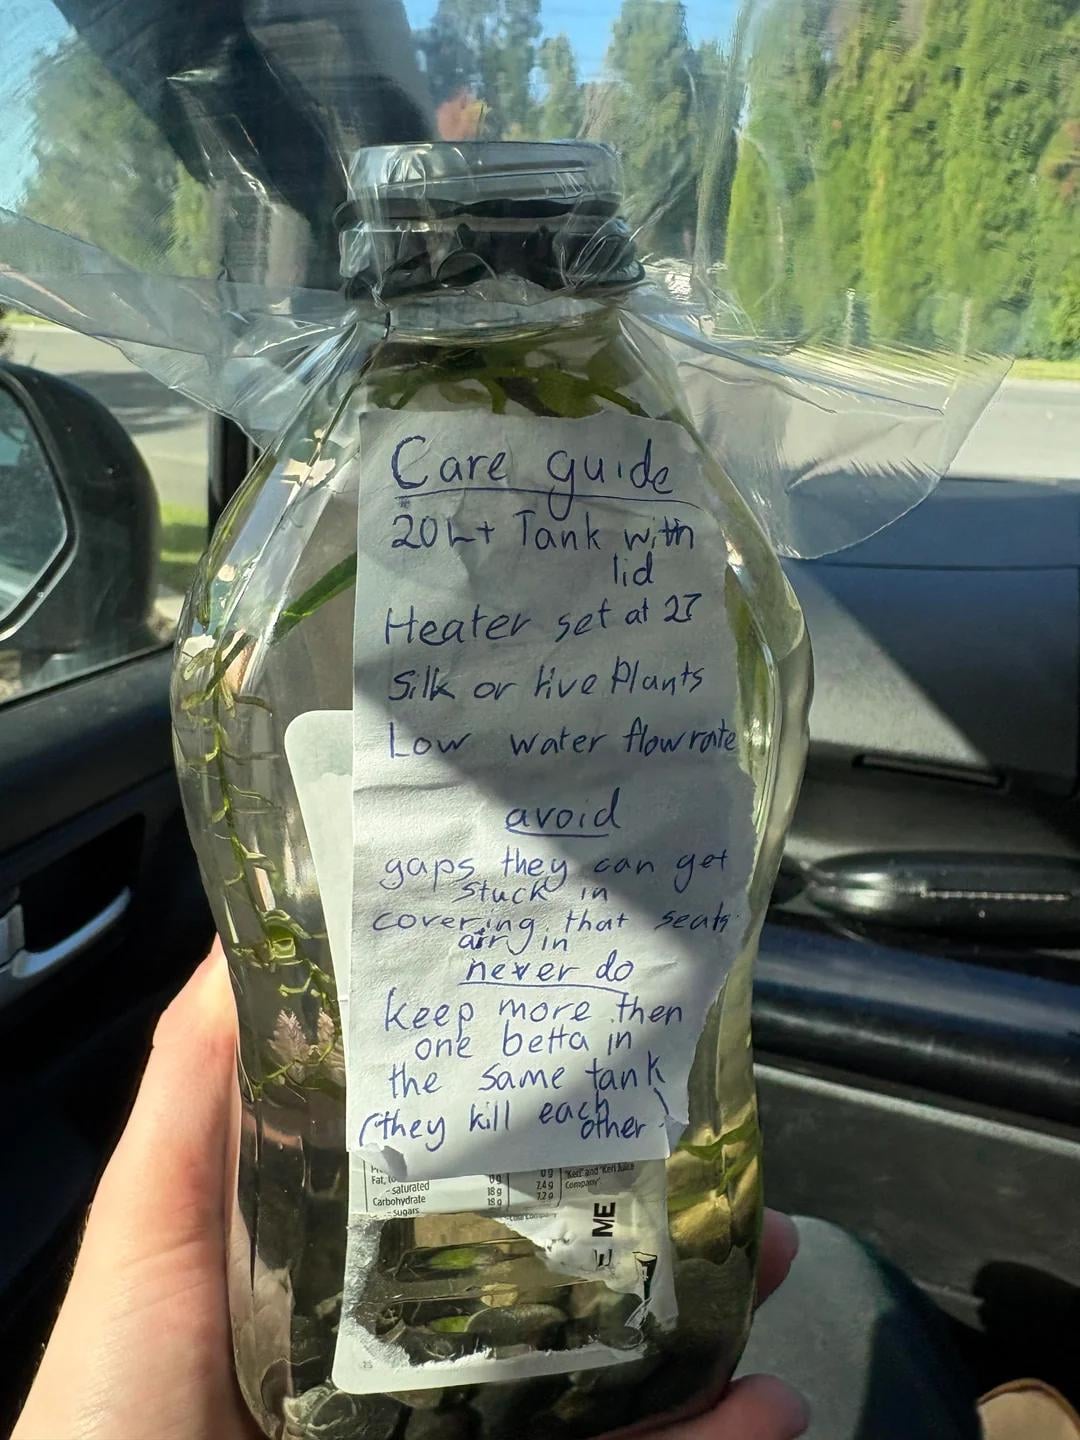 Care guide
20L+ Tank with
lid
Heater set at 27
Silk or live Plants
Low water flow rate
avoid
gaps they can get
stuck in
covering that seals
air in
never do
keep more then
one betta in
the same tank
(they kill each
other)
Fat, 0g
- saturated 0g 7.4g
Carbohydrate 18g 7.2g
- sugars 18g
'Keri' and 'Keri Juice
Company'
ME